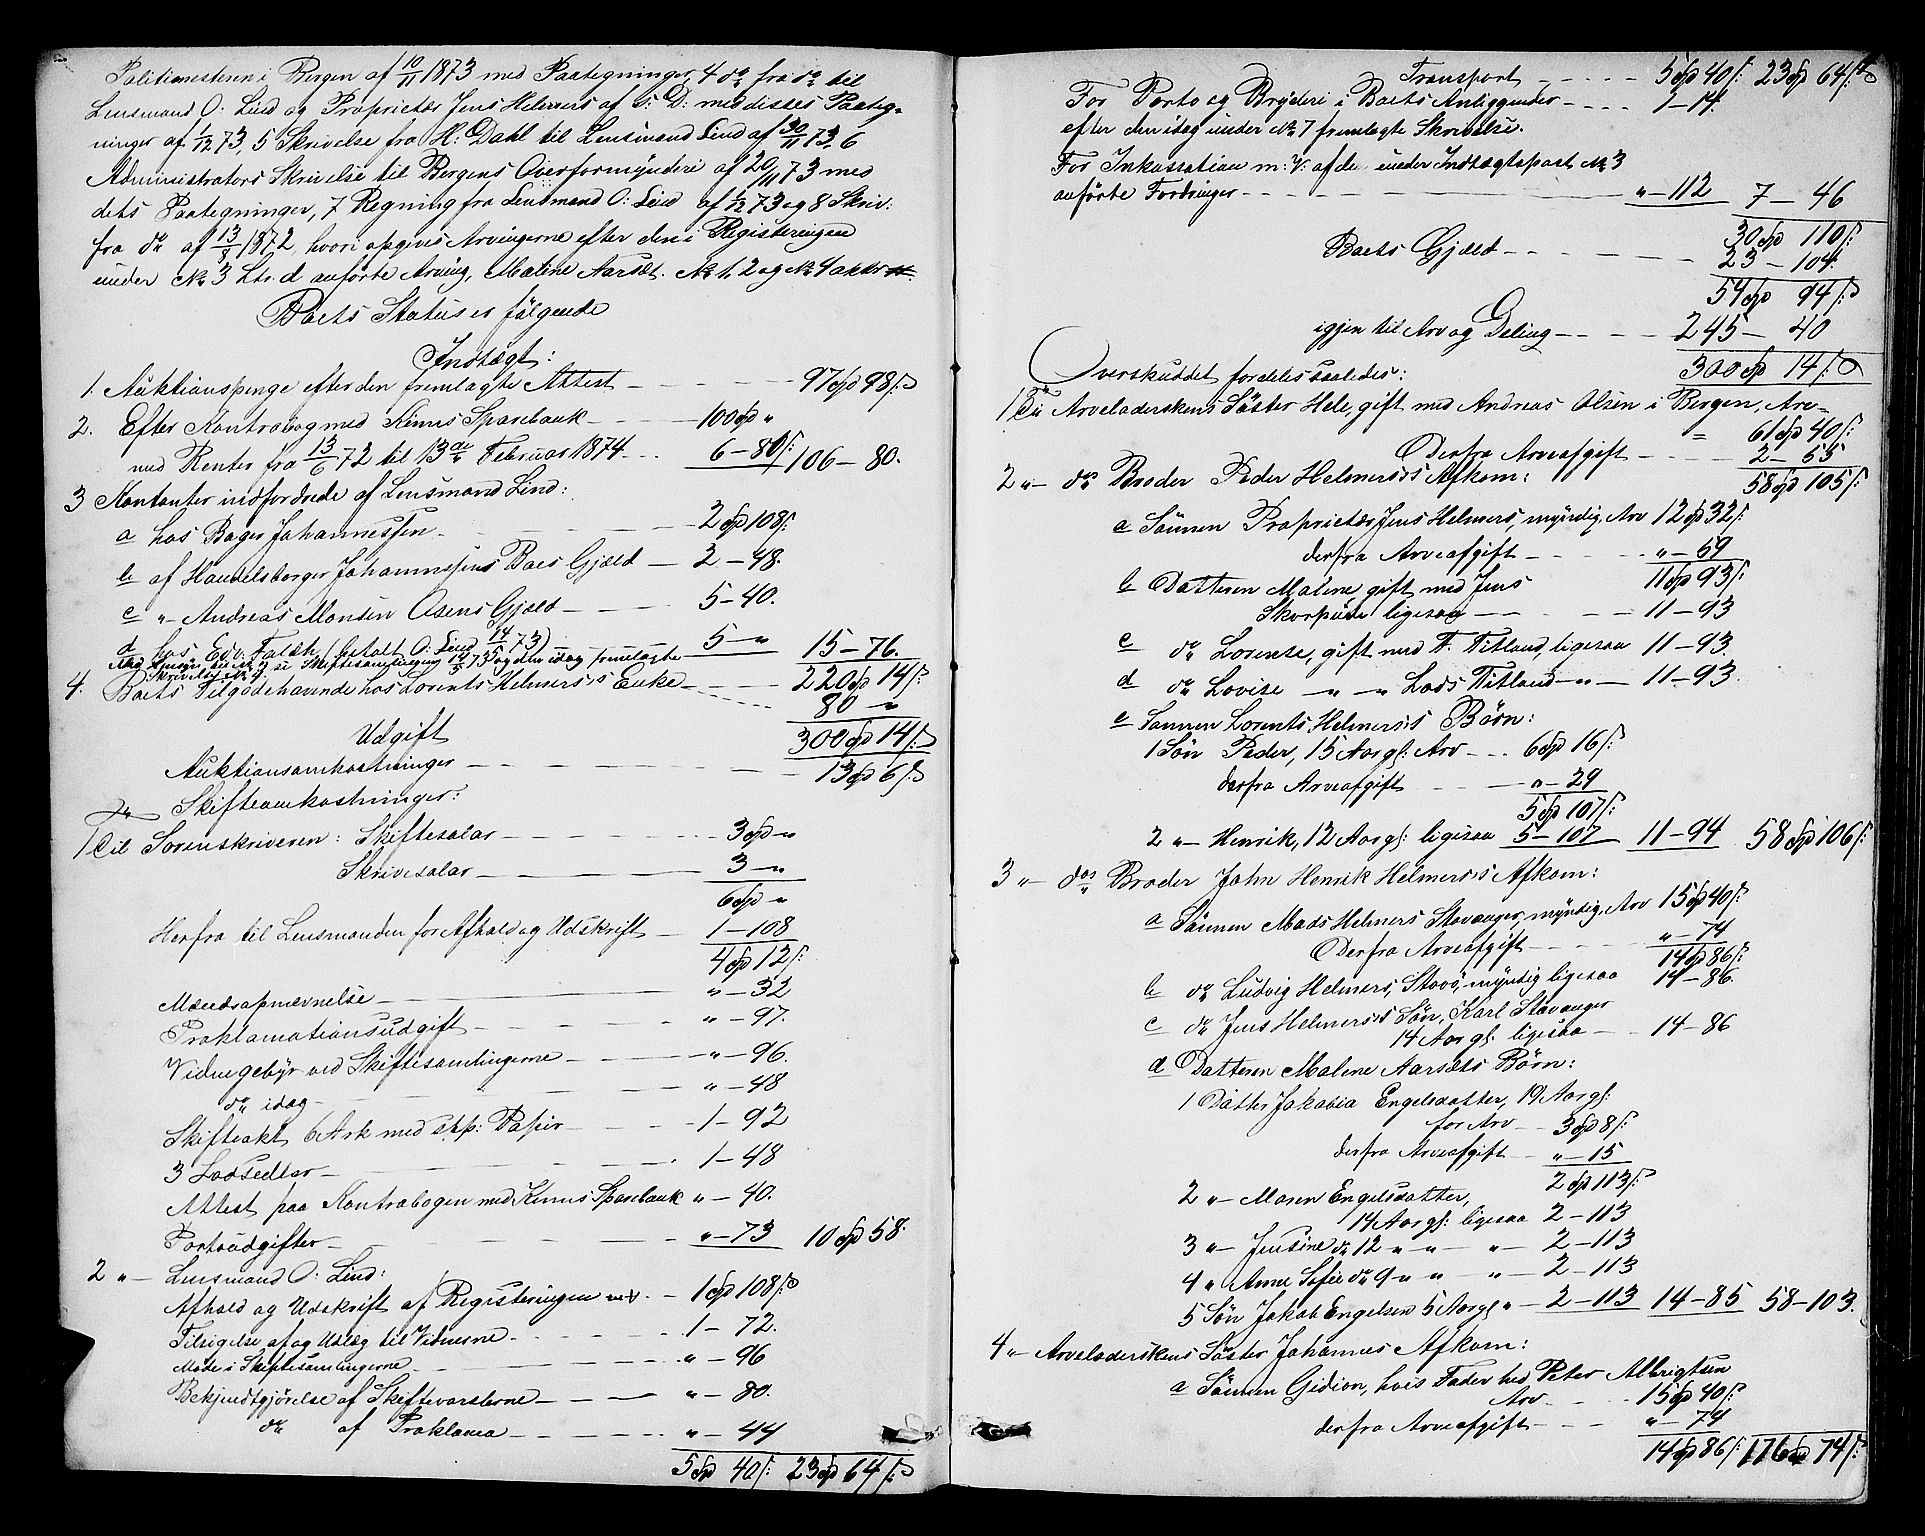 Politimesteren i Bergen af 10/11 1873 med Paategninger, 4 do fra do til
Lensmand O: Lind og Proprietær Jens Helmers af S: D: med disses Paateg-
ninger af 1/12 73, 5 Skrivelse fra H: Dahl til Lensmand Lind af 30/11 73, 6
Administrators Skrivelse til Bergens Overformynderi af 20/11 73 med
dets Paategninger, 7 Regning fra Lensmand O: Lind af 1/12 73 og 8 Skriv:
fra do af 13/8 1872, hvori opgives Arvingerne efter den i Registeringen
under No 3 Ltr. d anførte Arving, Malene Aarsæt. No 1, 2 og No 4
Boets Status er følgende
Indtægt:
1. Auktionspenge efter den fremlagte Attest — 97 Spd 98 ß
2. Efter Kontrabog med Kinns Sparebank — 100 Spd "
med Renter fra 13/6 72 til 13de Februar 1874 — 6 – 80 ß: 106 – 80.
3 Kontanter indfordrede af Lensmand Lind:
a hos Bager Johannessen — 2 Spd 108 ß:
b af Handelsborger Johannessens Boes Gjæld — 2 – 48.
c " Andreas Monsen Osens Gjæld — 5 – 40.
d hos Edv: Falch (betalt O: Lind 14/5 73) — 5 – " 15 – 76.
Skiftesamlingen 14/5 73 og den idag fremlagte
Skrivelse No 9.
220 Spd 14 ß:
4. Boets Tilgodehavende hos Lorents Helmers's Enke — 80 – "
Udgift 300 Spd 14 ß:
Auktionsomkostninger — 13 Spd 6 ß:
Skifteomkostninger:
1 Til Sorenskriveren: Skiftesalar — 3 Spd "
Skrivesalar — 3 – "
6 Spd "
Herfra til Lensmanden for Afhold og Udskrift — 1 – 108
4 Spd 12 ß:
Mændsopnævnelse — " – 32
Proklamationsudgift — " – 97.
Vidnegebyr ved Skiftesamlingerne — " – 96.
do idag — " – 48
Skifteakt 6 Ark med stp: Papir — 1 – 92
3 Lodsedler — 1 – 48
Attest paa Kontrabogen med Kinns Sparebank " – 40.
Portoudgifter — " – 73 10 Spd 58.
2 " – Lensmand O: Lind:
Afhold og Udskrift af Registeringen — 1 Spd 108 ß
Tilsigelse af og Udlæg til Vidnerne — 1 – 72.
Møde i Skiftesamlingerne — " – 96
Bekjendtgjørelse af Skiftevarslerne — " – 80.
do af Proklama — " – 44
5 Spd 40 ß: 23 Spd 64 ß:
Transport — 5 Spd 40 ß: 23 Spd 64 ß
For Porto og Bryderi i Boets Anliggender — 1 – 14.
efter den idag under No 7 fremlagte Skrivelse.
For Inkassation m: V: af de under Indtægtspost No 3
anførte Fordringer — " – 112 7 – 46
30 Spd 110 ß:
Boets Gjæld — 23 – 104.
54 Spd 94 ß:
igjen til Arv og Deling — 245 – 40
300 Spd 14 ß
Overskuddet fordeles saaledes:
1 Til Arveladerskens Søster Hele, gift med Andreas Olsen i Bergen, Arv –
" 61 Spd 40 ß:
Derfra Arveafgift — 2 – 55
58 Spd 105 ß:
2 " – do Broder Peder Helmers's Afkom:
a Sønnen Proprietær Jens Helmers, myndig, Arv 12 Spd 32 ß:
derfra Arveafgift — " – 59
11 Spd 93 ß:
b Datteren Malene gift med Jens
Skorpüün ligesaa — 11 – 93
c do Lorentse, gift med F. Titland, ligesaa 11 – 93.
d do Lovise – " – " Lods Titland – " – 11 – 93.
e Sønnen Lorents Helmers's Børn:
1 Søn Peder, 15 Aar gl: Arv — 6 Spd 16 ß:
derfra Arveafgift — " – 29
5 Spd 107 ß:
2 " – Henrik, 12 Aar gl: ligesaa 5 – 107 11 – 94 58 Spd 106 ß:
3 " – dos Broder John Henrik Helmers's Afkom:
a Sønnen Mads Helmers Stavanger, myndig, Arv 15 Spd 40 ß:
Derfra Arveafgift — " – 74
14 Spd 86 ß:
b do Ludvig Helmers, myndig ligesaa 14 – 86.
c do Jens Helmers's Søn, Karl Stavanger
14 Aar gl: ligesaa — 14 – 86
d Datteren Malene Aarsæts Børn:
1 Datter Jakobia Engelsdatter, 19 Aar gl:
for Arv — 3 Spd 8 ß:
derfra Arveafgift — " – 15
2 Spd 113 ß:
2 " – Maren Engelsdatter,
14 Aar gl: ligesaa 2 – 113
3 " – Jensine do 12 " " – " – 2 – 113
4 " Anne Sofie do 9 " " " – 2 – 113
5 Søn Jakob Engelsen 5 Aar gl " – 2 – 113 14 – 85 58 – 103.
4 " – Arveladerskens Søster Johannes Afkom:
a Sønnen Gidion, hvis Fader hed Peter Albrigtsen
Arv — 15 Spd 40 ß:
derfra Arveafgift — " – 74
14 Spd 86 ß: 176 Spd 74 ß: